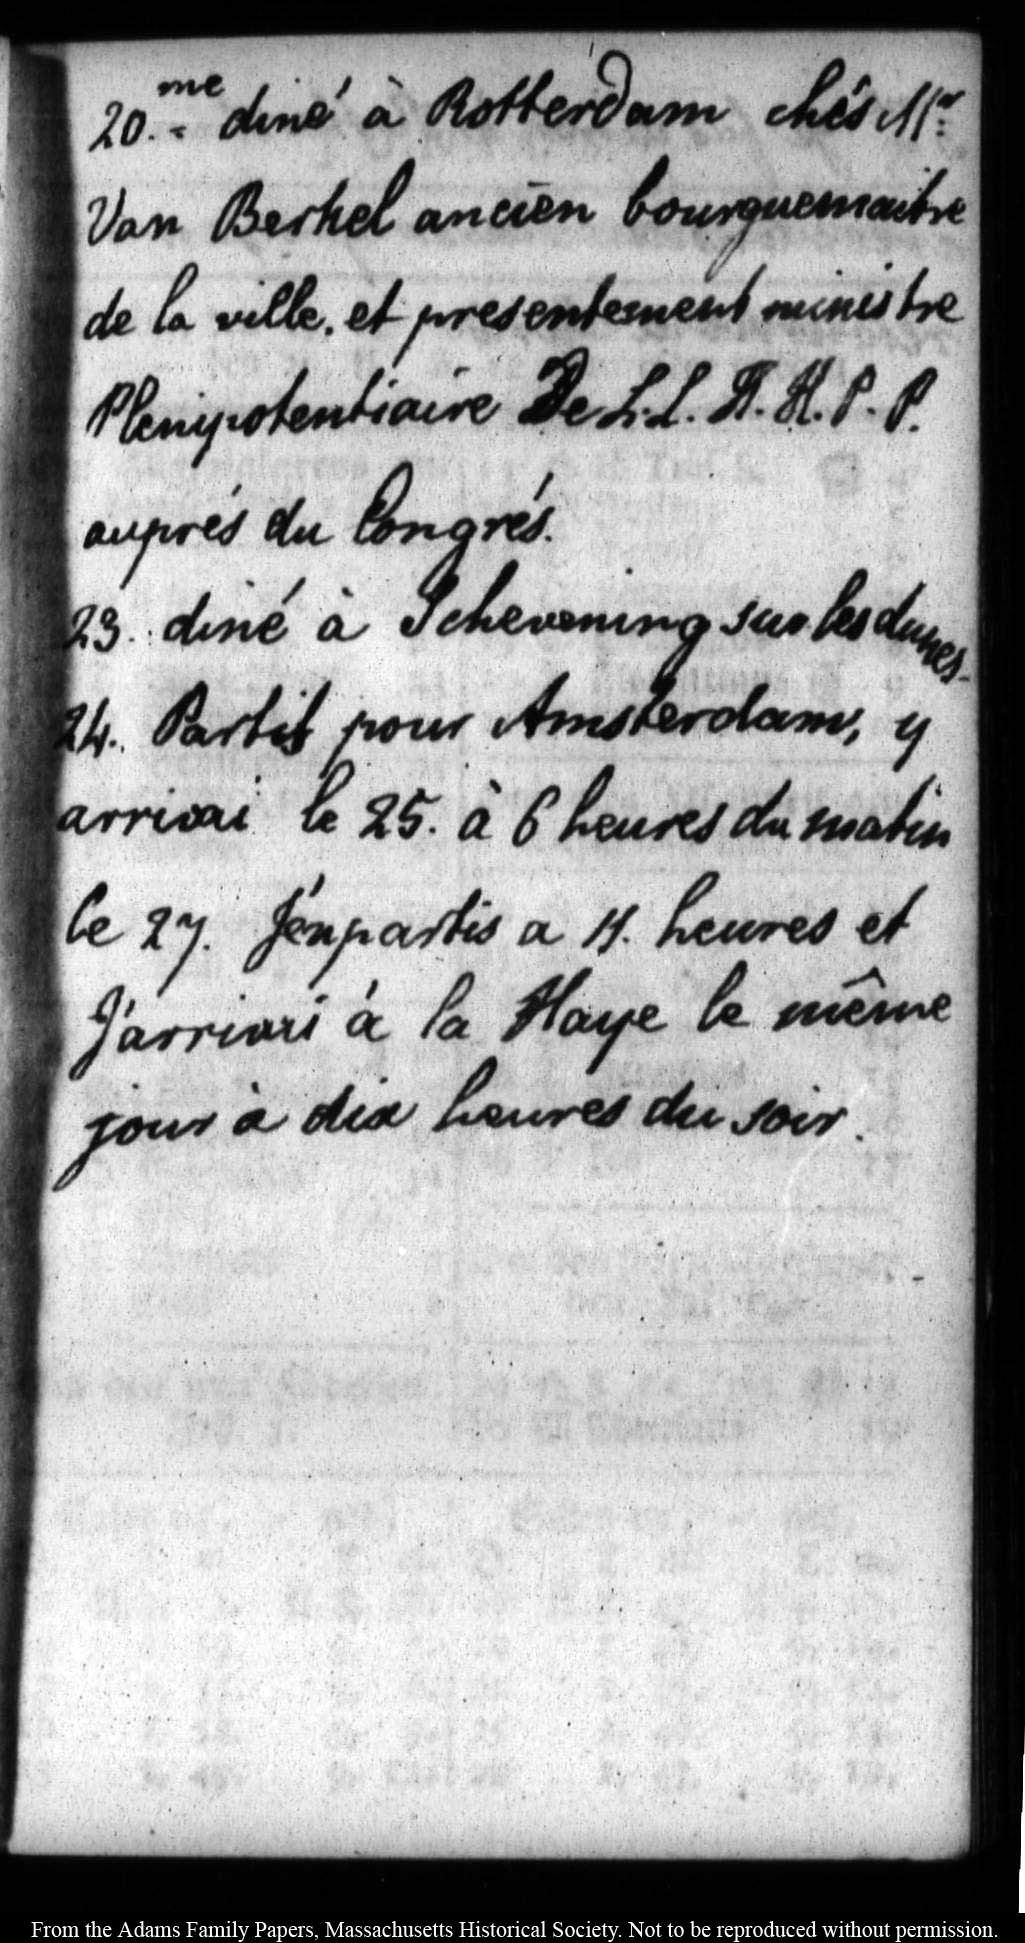 20.me diné à Rotterdam chés Mr:
Van Berkel ancien bourguemaitre
de la ville, et presentement ministre
Plenipotentiaire De L.L. H. H. P. P.
auprés du Congrés.
23. diné à Schevening sur les dunes.
24. Partit pour Amsterdam, y
arrivai le 25. à 6 heures du matin
le 27. J'en partis a 11. heures et
J'arrivai à la Haye le même
jour à dix heures du soir.
From the Adams Family Papers, Massachusetts Historical Society. Not to be reproduced without permission.